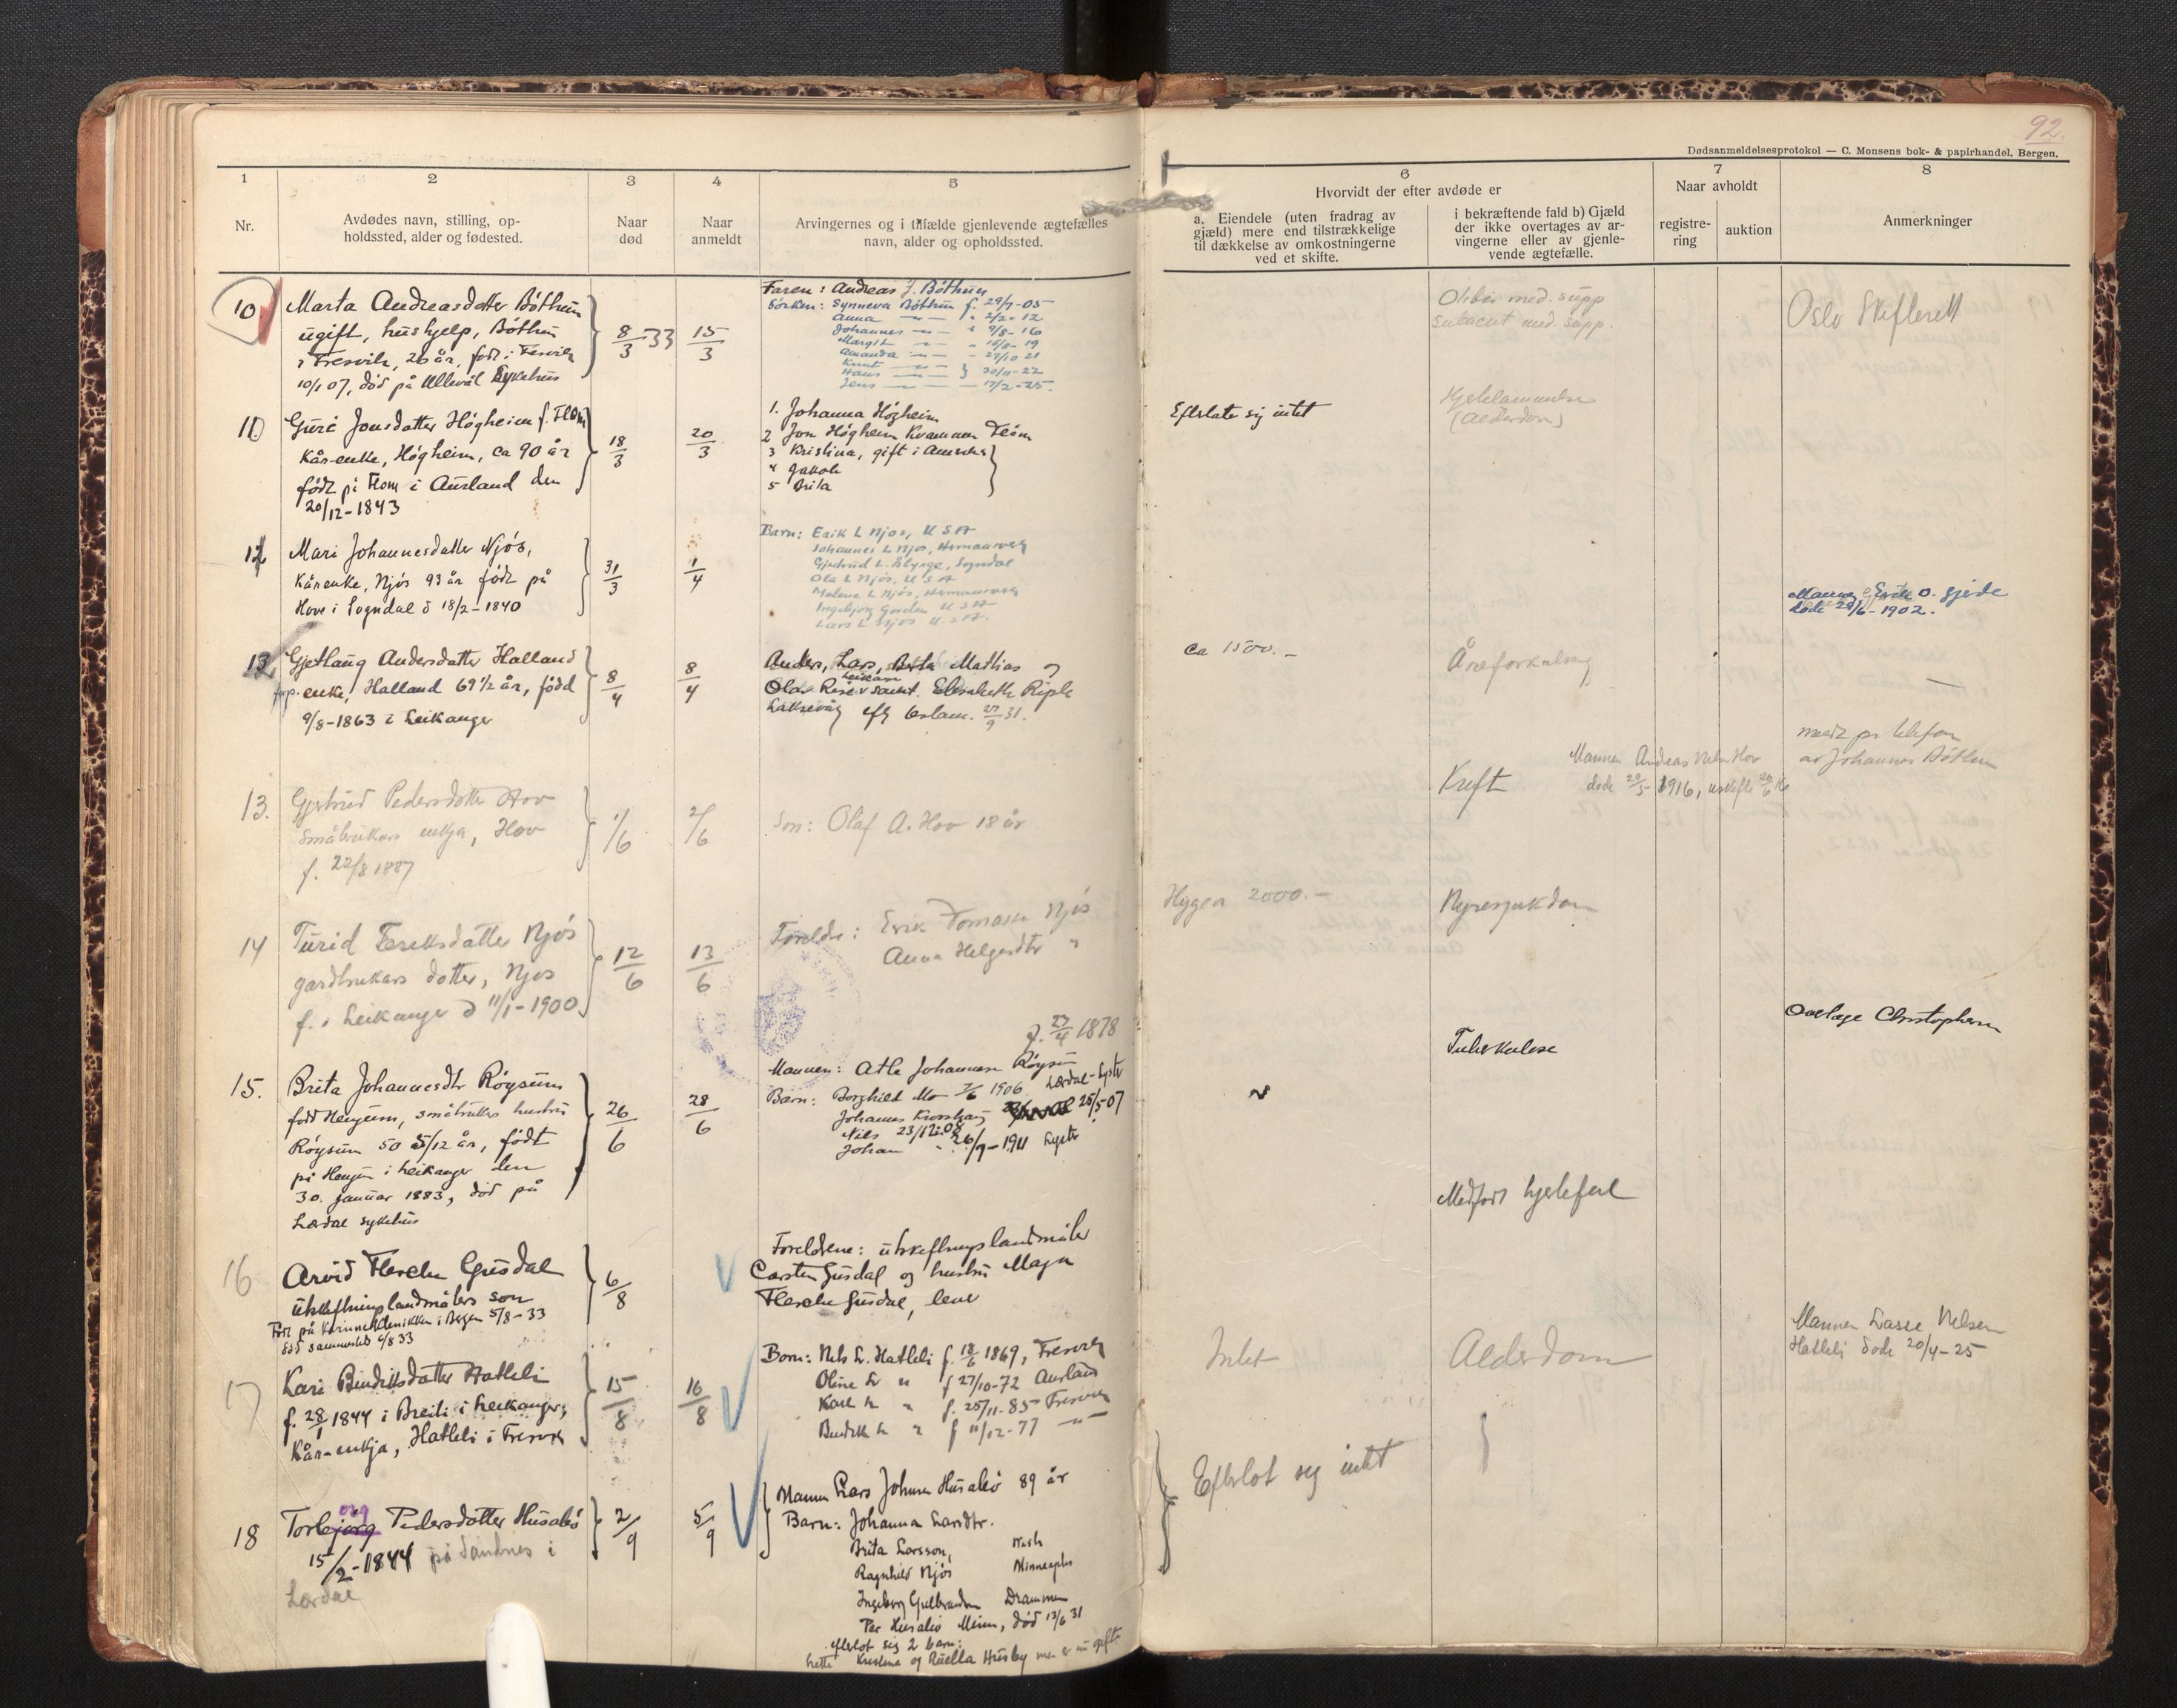 92.
Dødsanmeldelsesprotokol — C. Monsens bok- & papirhandel, Bergen.
1
2
3
4
5
6
7
8
Nr.
Avdødes navn, stilling, op-
holdssted, alder og fødested.
Naar
død
Naar
anmeldt
Arvingernes og i tilfælde gjenlevende ægtefælles
navn, alder og opholdssted.
Hvorvidt der efter avdøde er
a. Eiendele (uten fradrag av
gjæld) mere end tilstrækkelige
til dækkelse av omkostningerne
ved et skifte.
i bekræftende fald b) Gjæld
der ikke overtages av ar-
vingerne eller av gjenle-
vende ægtefælle.
Naar avholdt
registre-
ring
auktion
Anmerkninger
10
Marta Andreasdatter Bøthun
ugift, hushjelp, Bøthun
i Fresvik, 26 år, født i Fresvik
10/1 07, död på Ullevål Sykehus
8/3-33
15/3
Faren: Andreas J. Bøthun
Søsken: Synneva Bøthun f. 29/7-05
Anna — 2/2-12
Johannes — 9/8-16
Margit — 16/8-19
Amanda — 27/10 21
Knut —
Hans — } 20/11-22
Jens — 17/2-25.
med. supp
subacut med. supp.
Oslo Skifterett
11
Guri Jonsdatter Høgheim f. Flom
Kår-enke, Høgheim, ca 90 år
født på Flom i Aurland den
20/12-1843
18/3
20/3
1. Johanna Høgheim
2 Jon Høgheim Kvammen Flåm
3 Kristina, gift i Amerika
4 Jakob
5 Brita
Efterlate sig intet
Hjertelammelse
(Alderdom)
12
Mari Johannesdatter Njøs,
Kårenke, Njøs 93 år født på
Hove i Sogndal d 18/2-1840
31/3
1/4
Barn: Erik L Njøs, USA
Johannes L Njøs, Hermansverk
Gjertrud L. Slynge, Sogndal
Ola L Njøs, USA
Malene L Njøs, Hermansverk
Ingebjorg Gorden USA
Lars L. Njøs USA.
Mannen Erik O. Gjerde
døde 28/6-1902.
13
Gjetlaug Andersdatter Halland
enke, Halland 69 1/2 år, född
9/8-1863 i Leikanger
8/4
8/4
Anders, Lars, Berta Mathias og
Leikanger
Olav samt Elisabeth Riple
Laksevåg
27/9 31.
ca 1500.-
Åreforkalkning
—
13.
Gjertrud Pedersdatter Hov
småbrukars enkja, Hov
f. 22/8 1887
1/6
2/6
Son: Olaf A. Hov 18 år
Kreft
Mannen Andreas Nelsn Hov
døde 20/5 1916,
meldt pr telefon
av Johannes Bøthun
14
Turid Eriksdatter Njøs
gardbrukars dotter, Njøs
f. i Leikanger d 11/1-1900
12/6
13/6
Foreldre: Erik Tomassen Njøs
Anna Helgesdtr "
Hygea 2000.-
Nyresjukdom
15.
Brita Johannesdtr Røysum
född Henjum, småbrukers hustru
Røysum 50 5/12 år, født
på Henjum i Leikanger den
30. januar 1883, død på
Lærdal sykehus
26/6
28/6
f. 27/4 1878
Mannen: Atle Johannsen Røysum
Barn: Borghild Mo 7/6 1906 Lærdal-Lyster
Johannes 25/5-07
Nils 23/12-08
Johan 26/7-1911 Lyster
Tuberkulose
Overlæge Christophersen
16
Arvid Flesche Gusdal
utskiftningslandmålers son
Født på Kvinneklinikken i Bergen 5/8-33
død sammested 6/8 33
6/8
Foreldrene: utskiftningslandmåler
Carsten Gusdal og hustru Maja
Flesche Gusdal, lever
Medfødt hjertefeil
17
Kari Bendiksdatter Hatleli
f. 28/1 1844 i Breili i Leikanger,
Kår-enkja, Hatleli i Fresvik
15/8
16/8
Born: Nels L. Hatleli f. 18/6 1869, Fresvik
Oline L " f 27/10-72 Aurland
Karl L " f. 25/11-85 Fresvik
Bendik L " f 11/12-77 —"—
Intet
Alderdom
Mannen Lasse Nelsen
Hatleli døde 20/4-25
18
Torbjørg Pedersdatter Husabø
15/2-1844 på Sandnes i
Lærdal
2/9
5/9
Mannen Lars Johnsen Husabø 89 år
Barn: Johanna Larsdtr.
Brita Larsson,
Ragnhild Njøs Minneapolis
Ingeborg Gulbrandsen Drammen
Per Husabø Minn, død 13/6 31
efterlot sig 2 barn:
hette Kristine og Luella Husby men er nu gifte
Efterlot sig intet